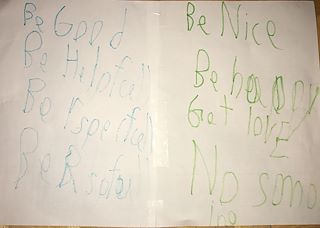 Be Good
Be Helpfull
Be rspectfull
Be R
Be Nice
Be happy
Get love
No smo
ing